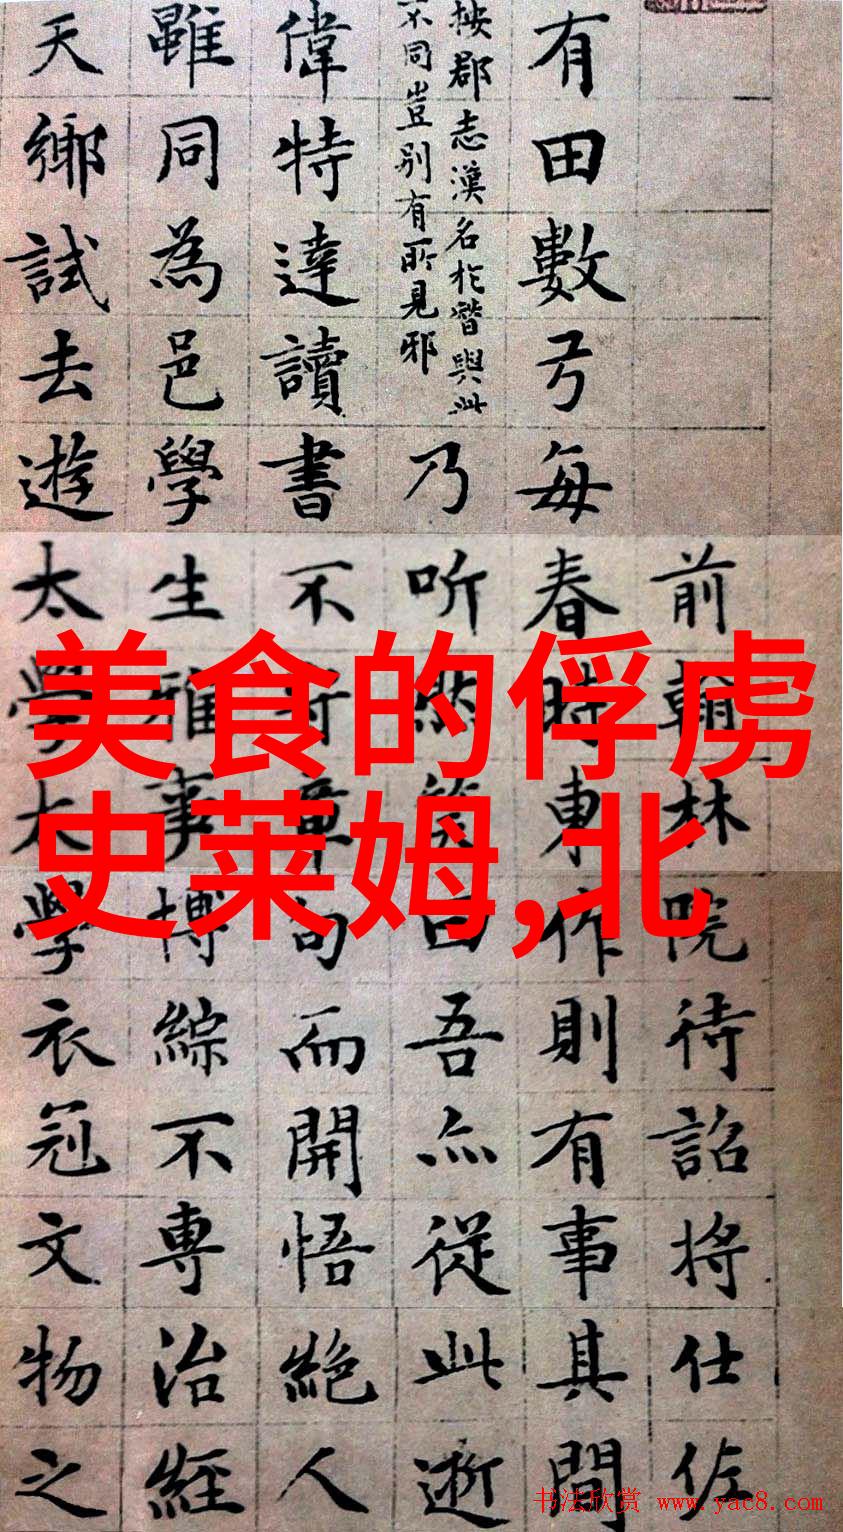 前翰林院待詔將仕佐
有田數弓每春時東作則有事其間
按郡志漢名於與此
不同豈别有所見邪
乃听然笑曰吾亦從此逝
偉特達讀書不守章句而開悟絕人
雖同為邑學生雅事博綜不專治經
天鄉試去遊太學太學衣冠文物之
美食的俘虏
史莱姆,北
书法欣赏 www.yac8.com